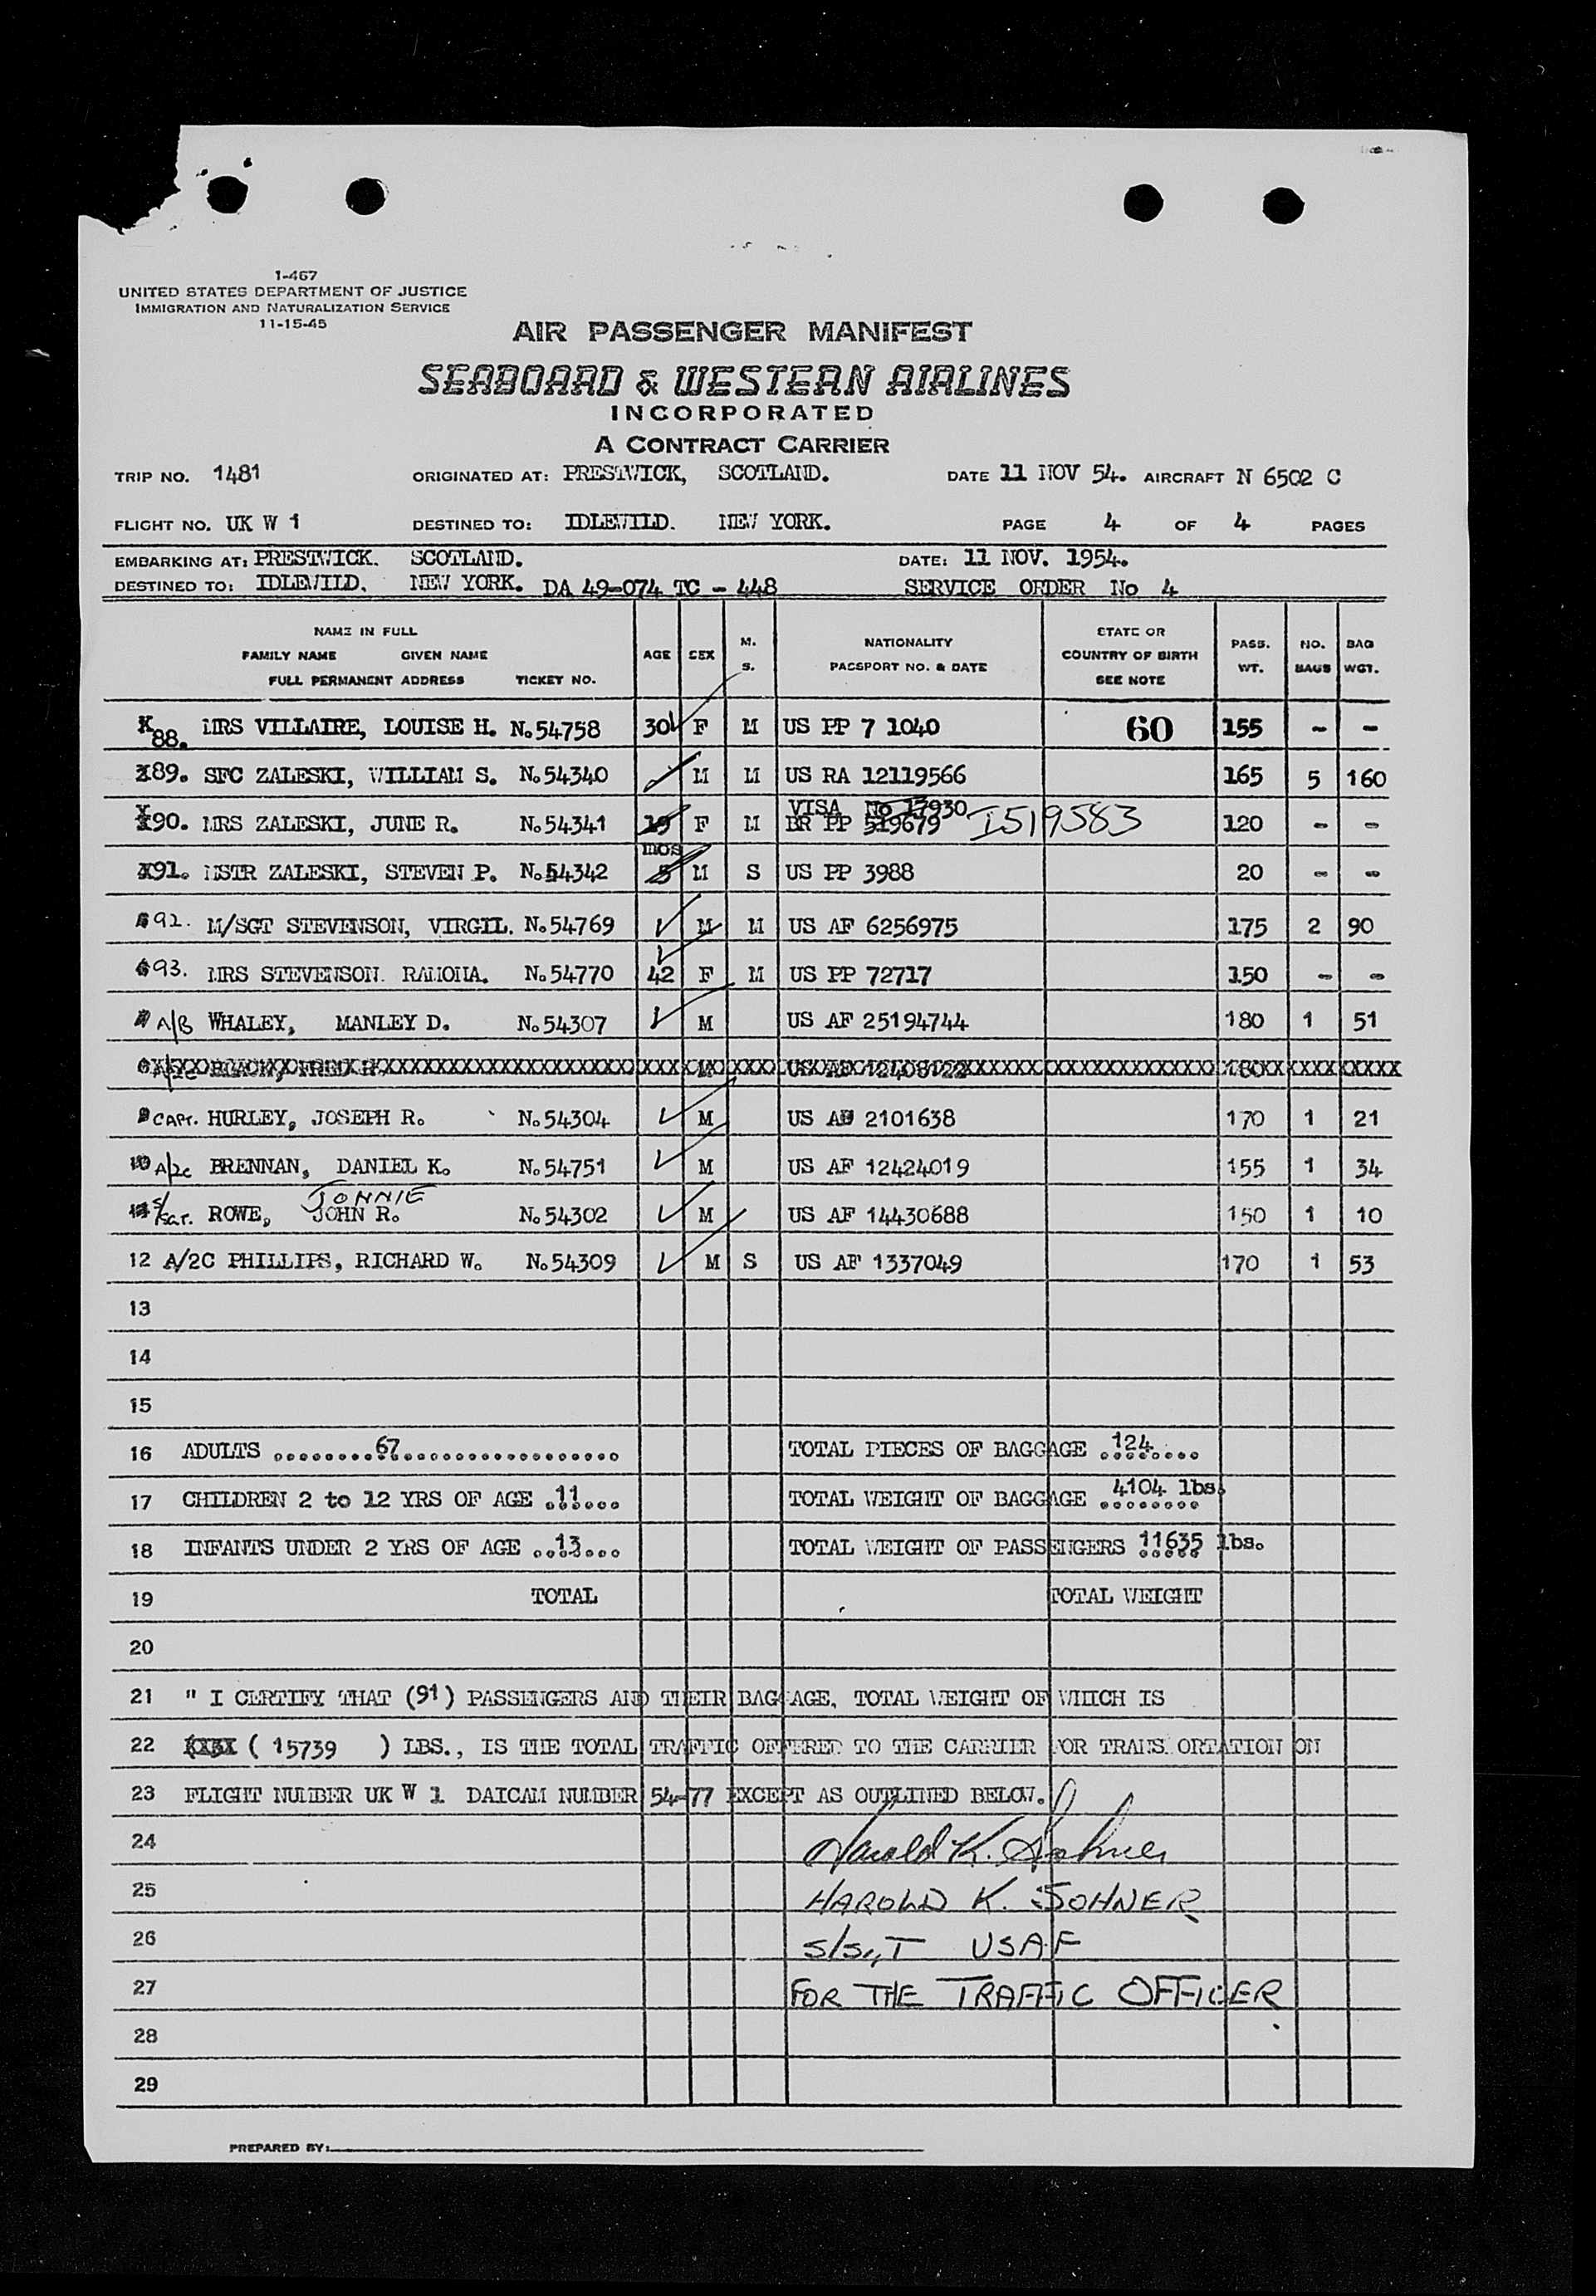 1-467
UNITED STATES DEPARTMENT OF JUSTICE
IMMIGRATION AND NATURALIZATION SERVICE
11-15-45
AIR PASSENGER MANIFEST
SEABOARD & WESTERN AIRLINES
INCORPORATED
A CONTRACT CARRIER
TRIP NO. 1481 ORIGINATED AT: PRESTWICK, SCOTLAND. DATE 11 NOV 54. AIRCRAFT N 6502 C
FLIGHT NO. UK W 1 DESTINED TO: IDLEWILD. NEW YORK. PAGE 4 OF 4 PAGES
EMBARKING AT: PRESTWICK. SCOTLAND. DATE: 11 NOV. 1954.
DESTINED TO: IDLEWILD. NEW YORK. DA 49-074 TC - 448 SERVICE ORDER No 4
NAME IN FULL
FAMILY NAME GIVEN NAME
FULL PERMANENT ADDRESS TICKET NO. AGE SEX M. S. NATIONALITY PASSPORT NO. & DATE STATE OR COUNTRY OF BIRTH SEE NOTE PASS. WT. NO. BAGS BAG WGT.
88. MRS VILLAIRE, LOUISE H. No 54758 30 F M US PP 7 1040 60 155 - -
89. SFC ZALESKI, WILLIAM S. No 54340 M M US RA 12119566 165 5 160
VISA No 17930
90. MRS ZALESKI, JUNE R. No 54341 19 F M BR PP 519679 I519583 120 - -
mos
91. MSTR ZALESKI, STEVEN P. No 54342 5 M S US PP 3988 20 - -
92. M/SGT STEVENSON, VIRGIL. No 54769 M M US AF 6256975 175 2 90
93. MRS STEVENSON. RAMONA. No 54770 42 F M US PP 72717 150 - -
A/B WHALEY, MANLEY D. No 54307 M US AF 25194744 180 1 51
A/2C BLACK, FRED M US AF
CAPT. HURLEY, JOSEPH R. No 54304 M US 2101638 170 1 21
A/2C BRENNAN, DANIEL K. No 54751 M US AF 12424019 155 1 34
JONNIE
S/SGT. ROWE, JOHN R. No 54302 M US AF 14430688 150 1 10
12 A/2C PHILLIPS, RICHARD W. No 54309 M S US AF 1337049 170 1 53
13
14
15
16 ADULTS ........67.................... TOTAL PIECES OF BAGGAGE .124.....
17 CHILDREN 2 to 12 YRS OF AGE .11.... TOTAL WEIGHT OF BAGGAGE 4104 lbs.
18 INFANTS UNDER 2 YRS OF AGE ..13... TOTAL WEIGHT OF PASSENGERS 11635 lbs.
19 TOTAL TOTAL WEIGHT
20
21 " I CERTIFY THAT (91) PASSENGERS AND THEIR BAGGAGE, TOTAL WEIGHT OF WHICH IS
22 ( 15739 ) LBS., IS THE TOTAL TRAFFIC OFFERED TO THE CARRIER FOR TRANS ORTATION ON
23 FLIGHT NUMBER UK W 1 DAICAM NUMBER 54-77 EXCEPT AS OUTLINED BELOW.
24 Harold K. Sohner
25 HAROLD K. SOHNER
26 S/SGT USAF
27 FOR THE TRAFFIC OFFICER
28
29
PREPARED BY: